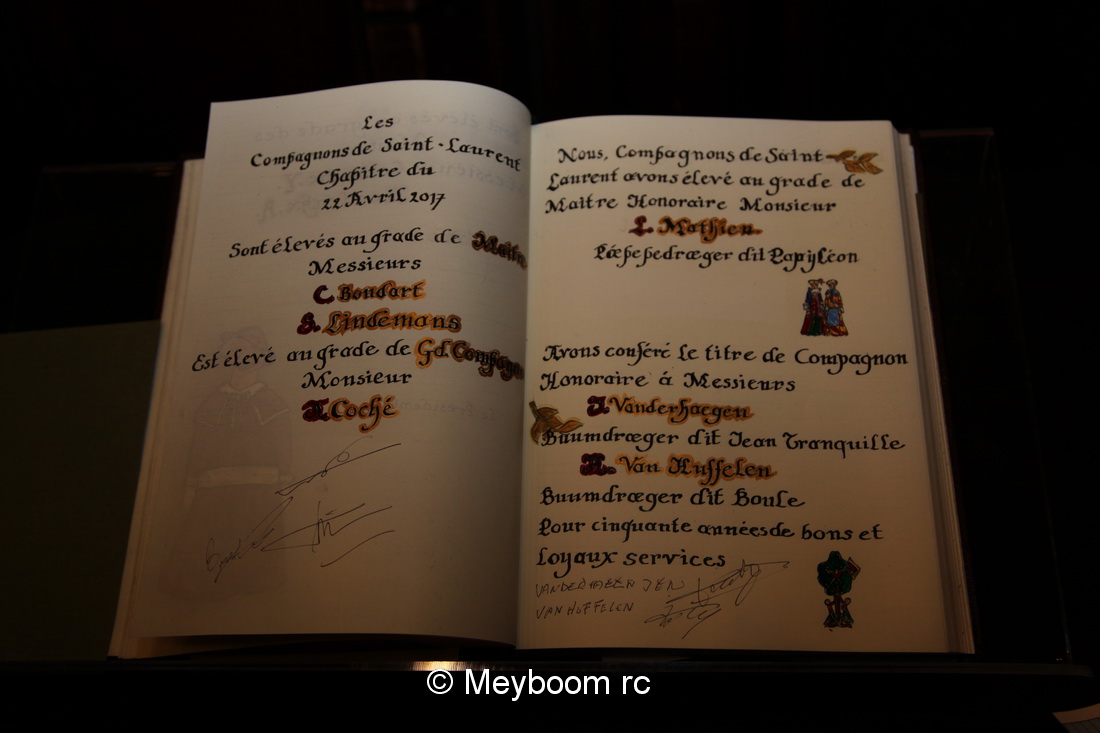 Les
Compagnons de Saint-Laurent
Chapitre du
22 Avril 2017
Sont élevés au grade de Maitre
Messieurs
C. Boudart
S. Lindemans
Est élevé au grade de Gd. Compagn
Monsieur
Coché
Nous, Compagnons de Saint
Laurent avons élevé au grade de
Maitre Honoraire Monsieur
L. Mathieu
Poepedræger dit Papyléon
Avons conféré le titre de Compagnon
Honoraire à Messieurs
J. Vanderhaegen
Buumdræger dit Jean Tranquille
Van Huffelen
Buumdræger dit Boule
Pour cinquante années de bons et
loyaux services
VANDERHAEGEN JEN
VAN HUFFELEN
© Meyboom rc